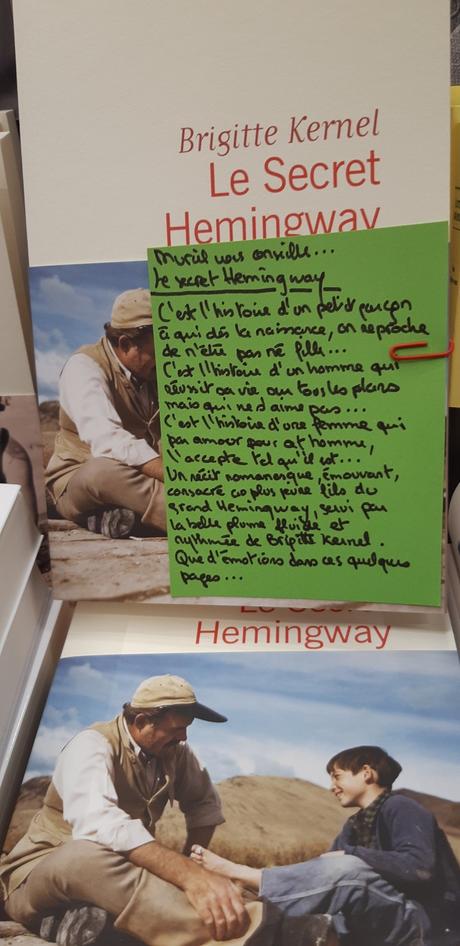 Brigitte Kernel
Le Secret
Hemingway
Muriel vous conseille...
Le secret Hemingway
C'est l'histoire d'un petit garçon
à qui dès la naissance, on reproche
de n'être pas né fille...
C'est l'histoire d'un homme qui
réussit sa vie sur tous les plans
mais qui ne s'aime pas...
C'est l'histoire d'une femme qui
par amour pour cet homme,
l'accepte tel qu'il est...
Un récit romanesque, émouvant,
consacré au plus jeune fils du
grand Hemingway, servi par
la belle plume fluide et
rythmée de Brigitte Kernel.
Que d'émotions dans ces quelques
pages...
Le Secret
Hemingway